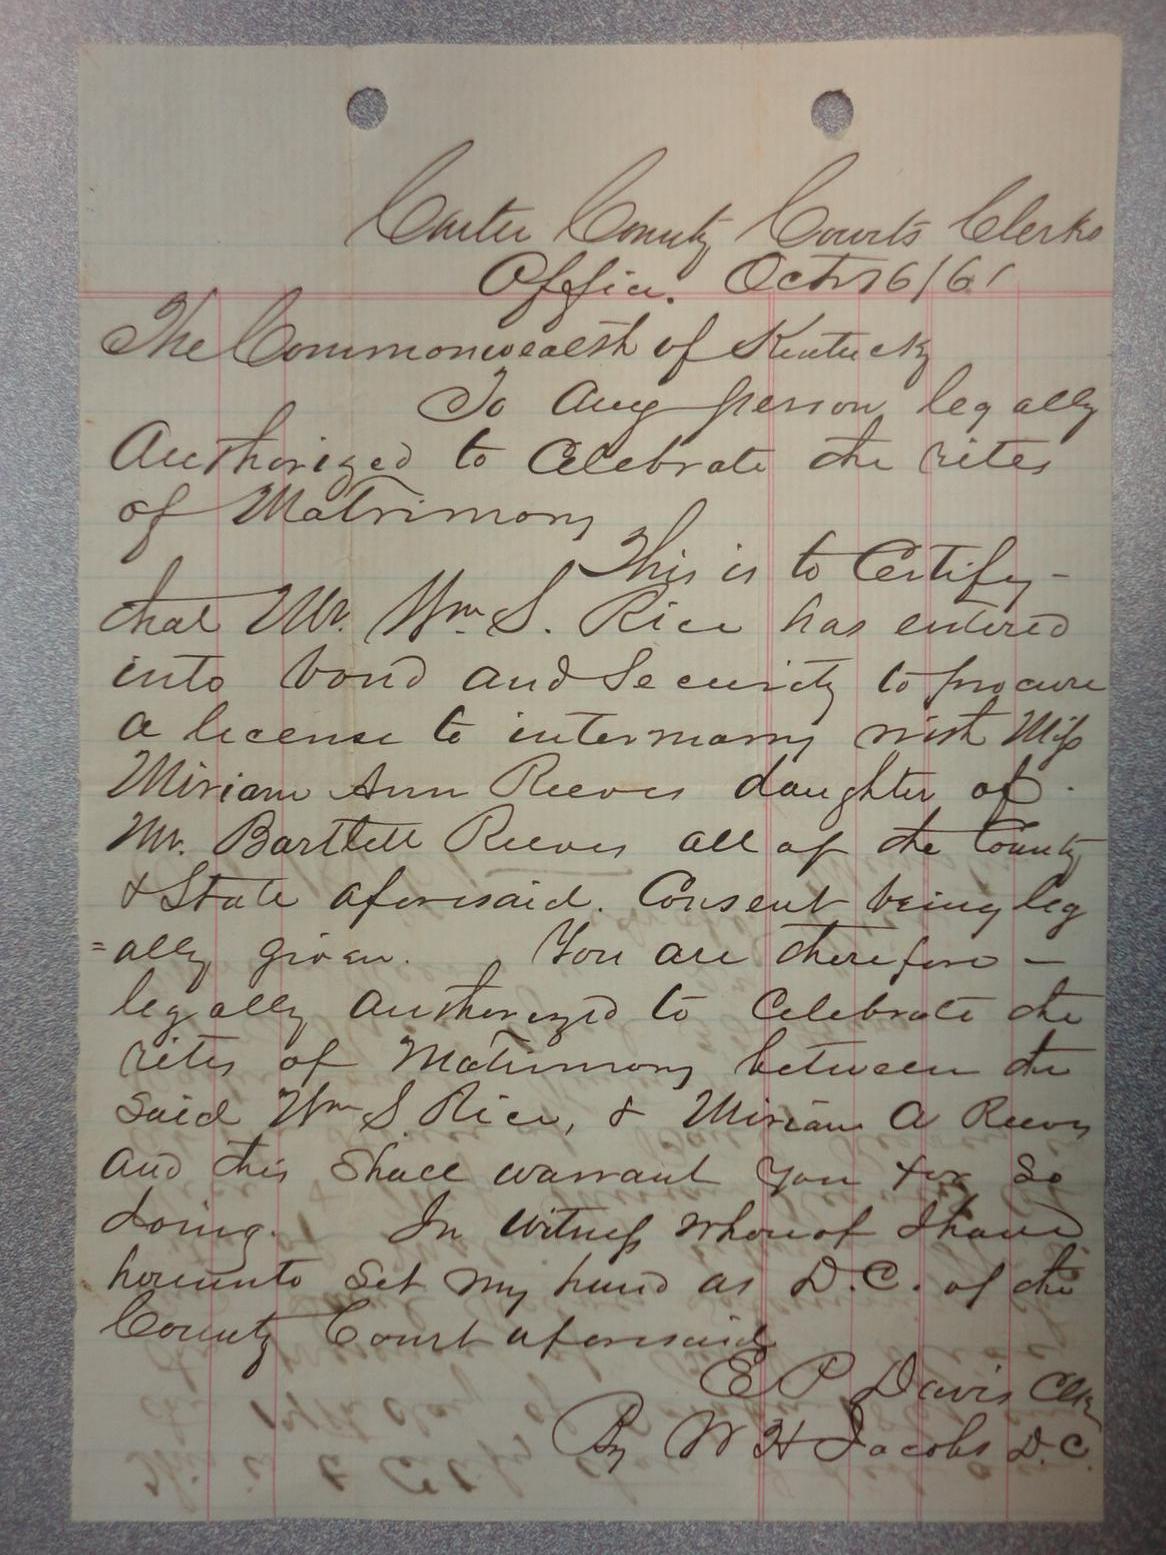 Carter County Courts Clerks
Office. Oct 16/61
The Commonwealth of Kentucky
To Any person legally
Authorized to Celebrate the rites
of Matrimony
This is to Certify -
that Mr. Wm. S. Rice has entered
into bond and Security to procure
a license to intermarry with Miss
Miriam Ann Reeves daughter of
Mr. Bartlett Reeves all of the County
& State aforesaid. Consent being leg
=ally given. You are therefore -
legally authorized to Celebrate the
rites of Matrimony between the
said Wm S. Rice, & Miriam A Reeves
and this shall warrant you for so
doing. In Witness whereof I have
hereunto set my hand as D.C. of the
County Court aforesaid
E P Davis Clk
By W H Jacobs D.C.